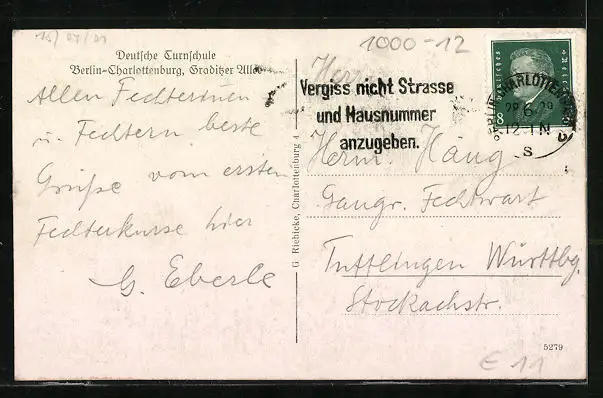 1000-12
Deutsche Turnschule
Berlin-Charlottenburg, Graditzer Allee
Allen Fechterinnen
u. Fechtern beste
Grüße vom ersten
Fechterkurse hier
G. Eberle
G. Riebicke, Charlottenburg 4
Vergiss nicht Strasse
und Hausnummer
anzugeben.
BERLIN-CHARLOTTENBURG
28.6.29
12-1 N
8
Herrn
Herm. Häng
Gaugr. Fechtwart
Tuttlingen Württbg.
Stockachstr.
5279
€ 11